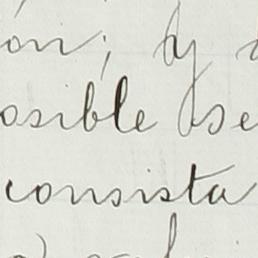 ón; y
osible se
consista